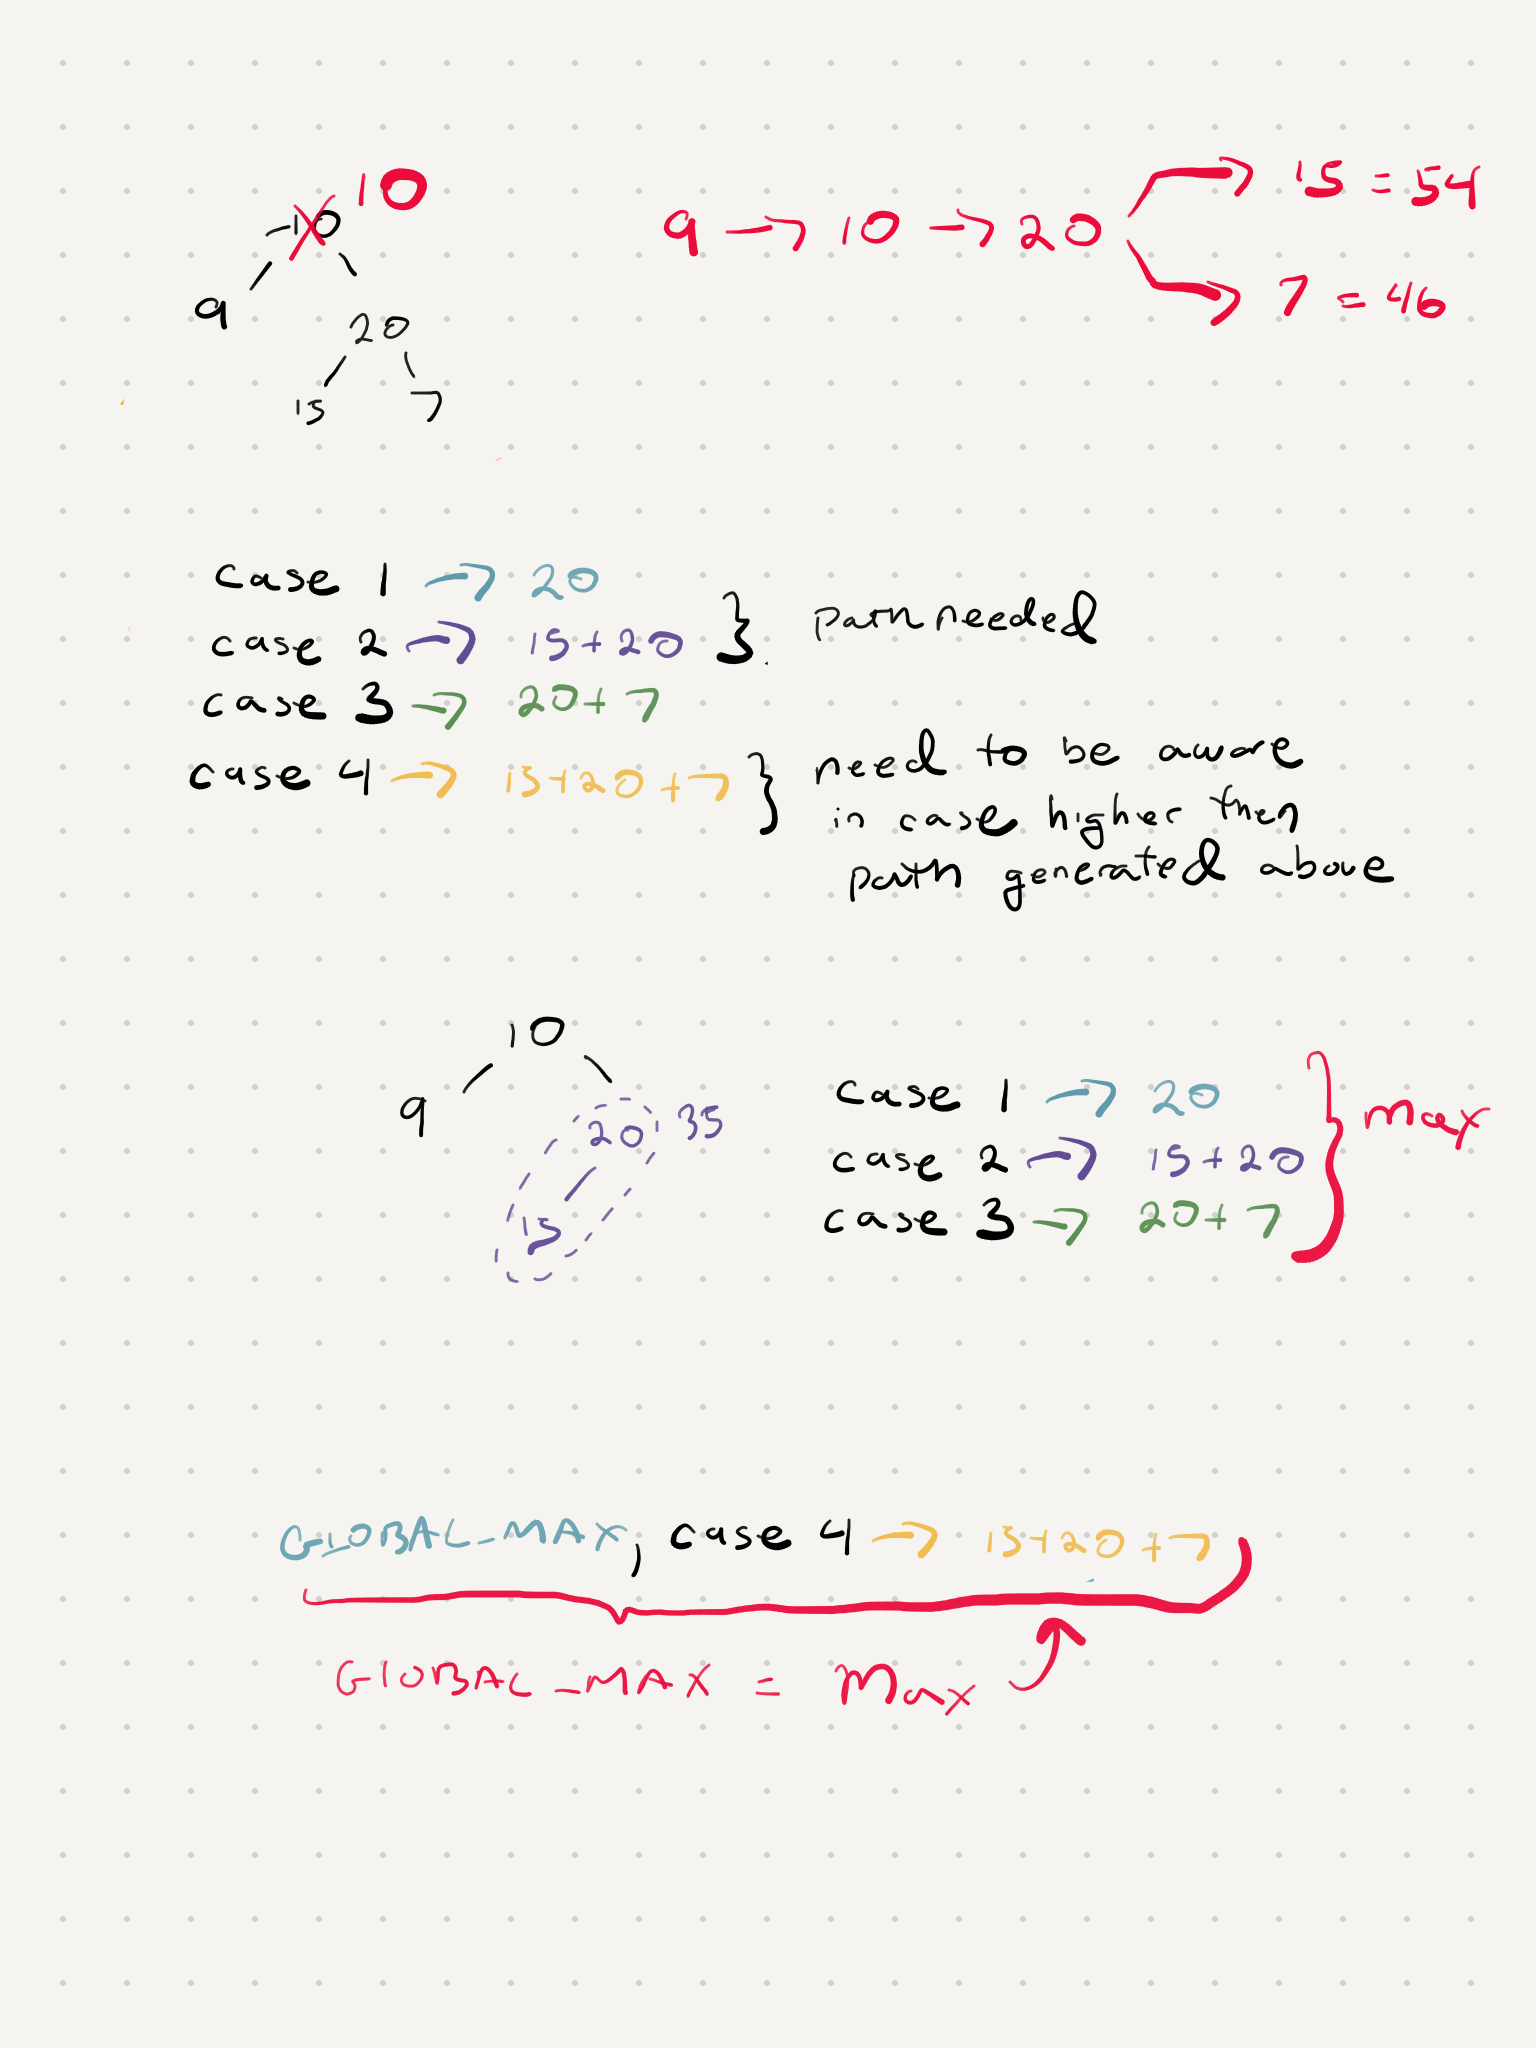 10
-10
9
20
15 7
9 → 10 → 20
→ 15 = 54
→ 7 = 46
case 1 → 20
case 2 → 15+20
case 3 → 20+7
} path needed
case 4 → 15+20+7
} need to be aware
in case higher then
path generated above
10
9
20 35
15
case 1 → 20
case 2 → 15+20
case 3 → 20+7
} max
GLOBAL_MAX, case 4 → 15+20+7
GLOBAL_MAX = max